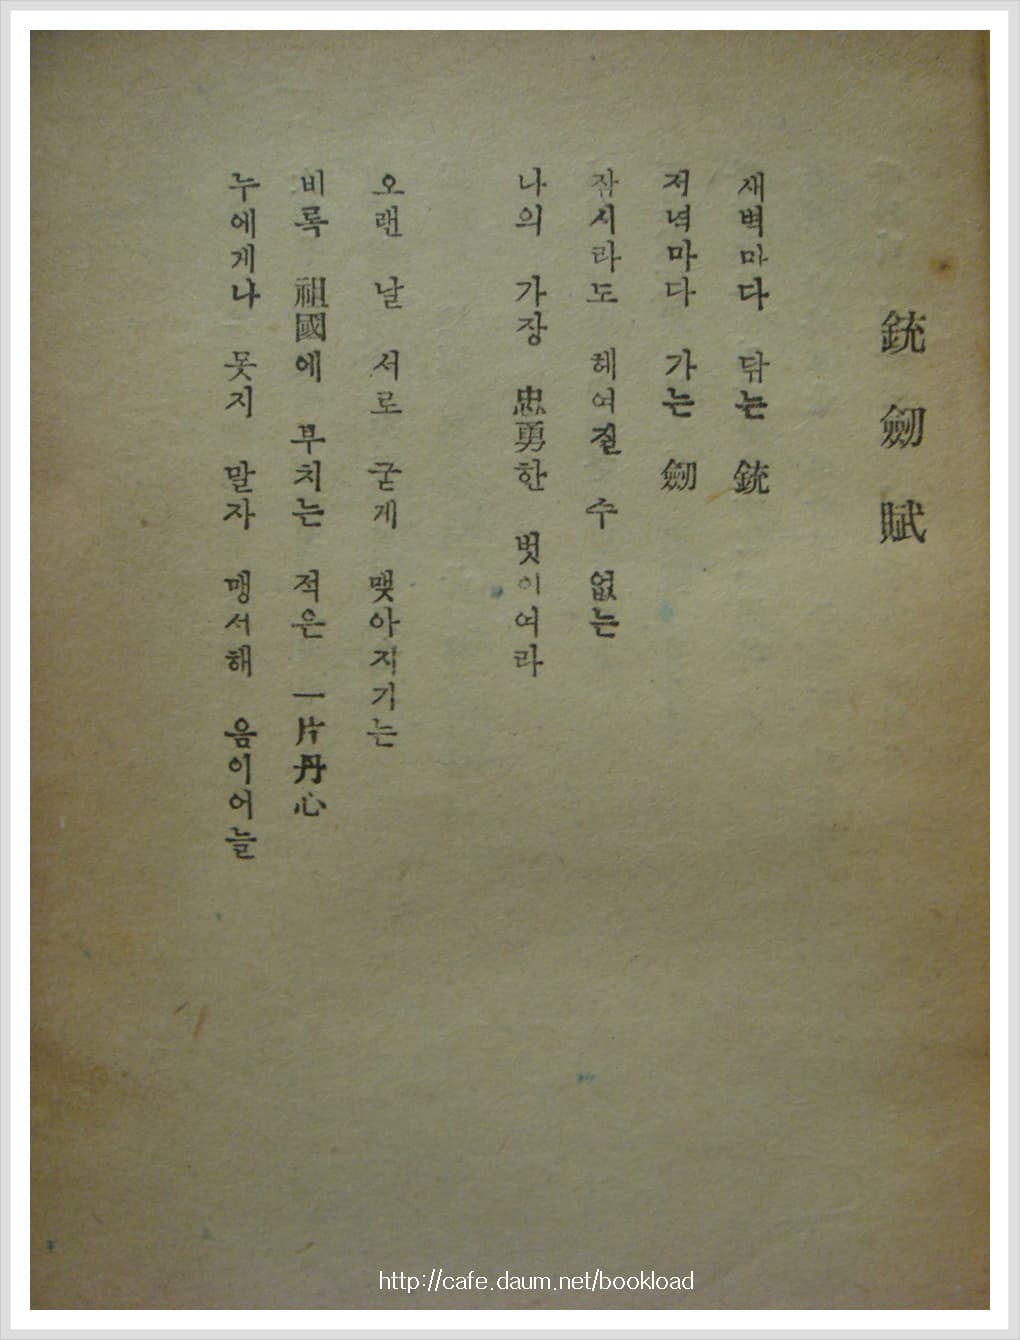 銃劒賦
새벽마다 닦는 銃
저녁마다 가는 劒
잠시라도 헤여질 수 없는
나의 가장 忠勇한 벗이여라
오랜 날 서로 굳게 맺아지기는
비록 祖國에 부치는 적은 一片丹心
누에게나 못지 말자 맹서해 음이어늘
http://cafe.daum.net/bookload